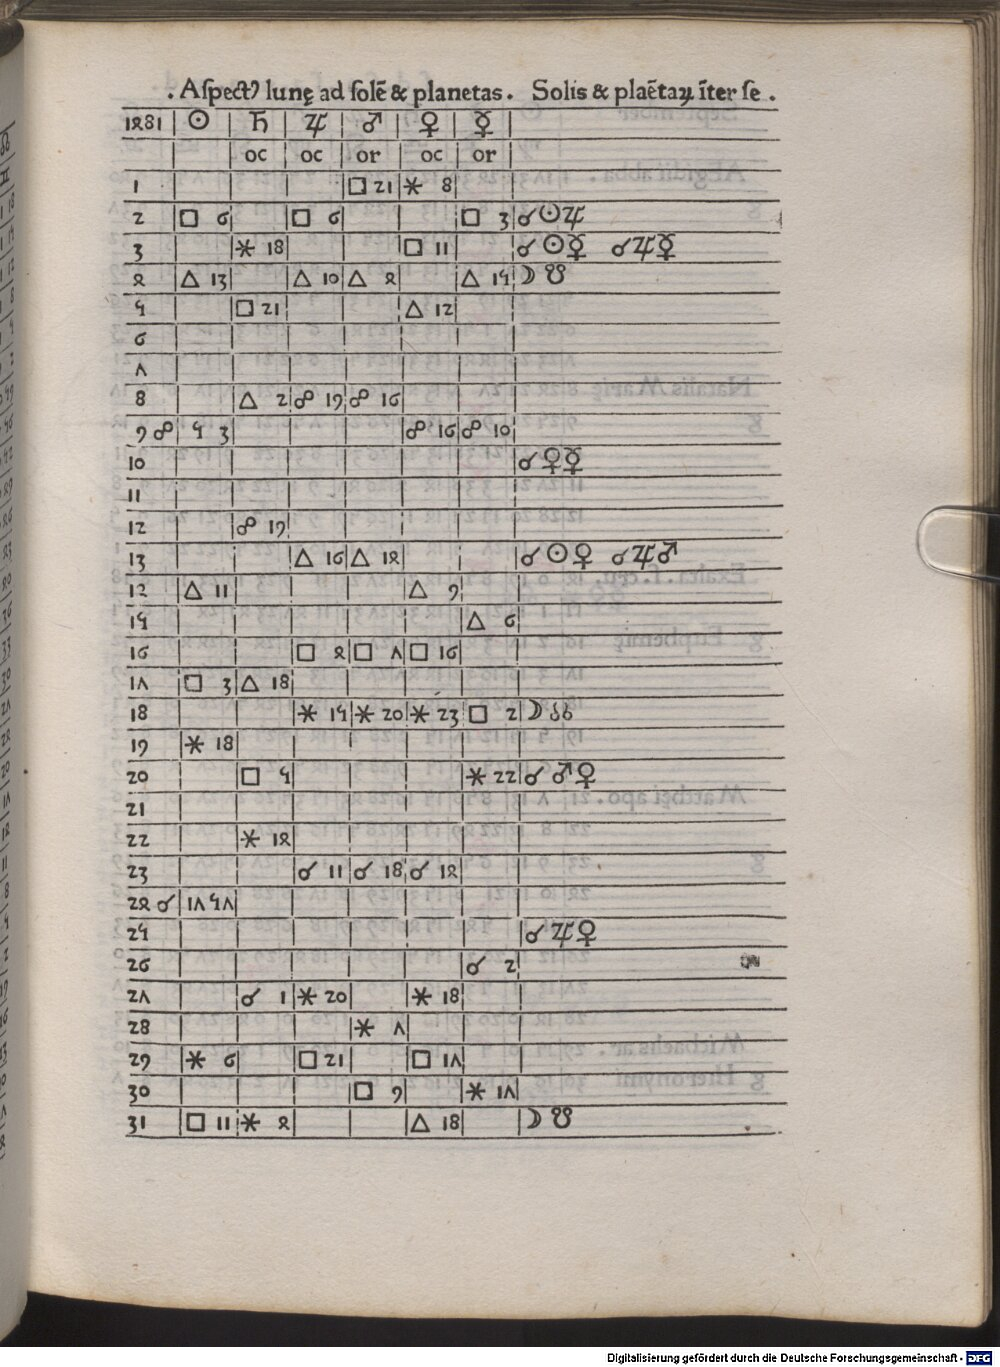 . Aſpectꝰ lunę ad ſolē & planetas . Solis & plaētaꝝ īter ſe .
1481 ☉ ♄ ♃ ♂ ♀ ☿
oc oc or oc or
1 □ 21 ⚹ 8
2 □ 6 □ 6 □ 3 ☌☉♃
3 ⚹ 18 □ 11 ☌☉☿ ☌♃☿
4 △ 13 △ 10 △ 4 △ 15 ☽☋
5 □ 21 △ 12
6
7
8 △ 2 ☍ 19 ☍ 16
9 ☍ 5 3 ☍ 16 ☍ 10
10 ☌♀☿
11
12 ☍ 19
13 △ 16 △ 14 ☌☉♀ ☌♃♂
14 △ 11 △ 9
15 △ 6
16 □ 4 □ 7 □ 16
17 □ 3 △ 18
18 ⚹ 15 ⚹ 20 ⚹ 23 □ 2 ☽☊
19 ⚹ 18
20 □ 5 ⚹ 22 ☌♂♀
21
22 ⚹ 14
23 ☌ 11 ☌ 18 ☌ 14
24 ☌ 17 57
25 ☌♃♀
26 ☌ 2
27 ☌ 1 ⚹ 20 ⚹ 18
28 ⚹ 7
29 ⚹ 6 □ 21 □ 17
30 □ 9 ⚹ 17
31 □ 11 ⚹ 4 △ 18 ☽☋
Digitalisierung gefördert durch die Deutsche Forschungsgemeinschaft - DFG